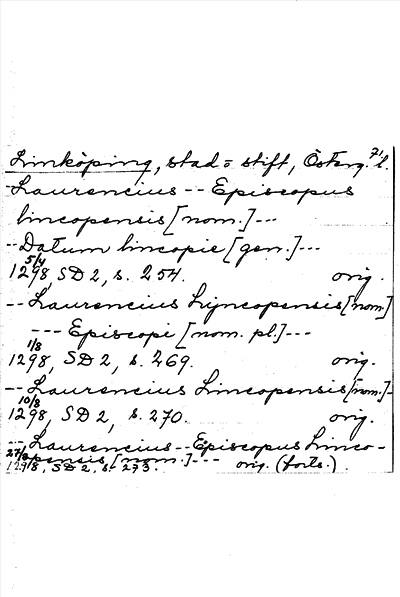 71
Linköping, stad o stift, Österg. l.
Laurencius -- Episcopus
lincopensis [nom.] ---
-- Datum lincopie [gen.] ---
5/4
1298, SD 2, s. 254. orig.
-- Laurencius Lyncopensis [nom]
--- Episcopi [nom. pl.] ---
1/8
1298, SD 2, s. 269. orig.
-- Laurencius Lincopensis [nom.] -
10/8
1298, SD 2, s. 270. orig.
--- Laurencius -- Episcopus Linco-
pensis [nom.] ---
27/8
1298, SD 2, s. 273. orig. (forts.)